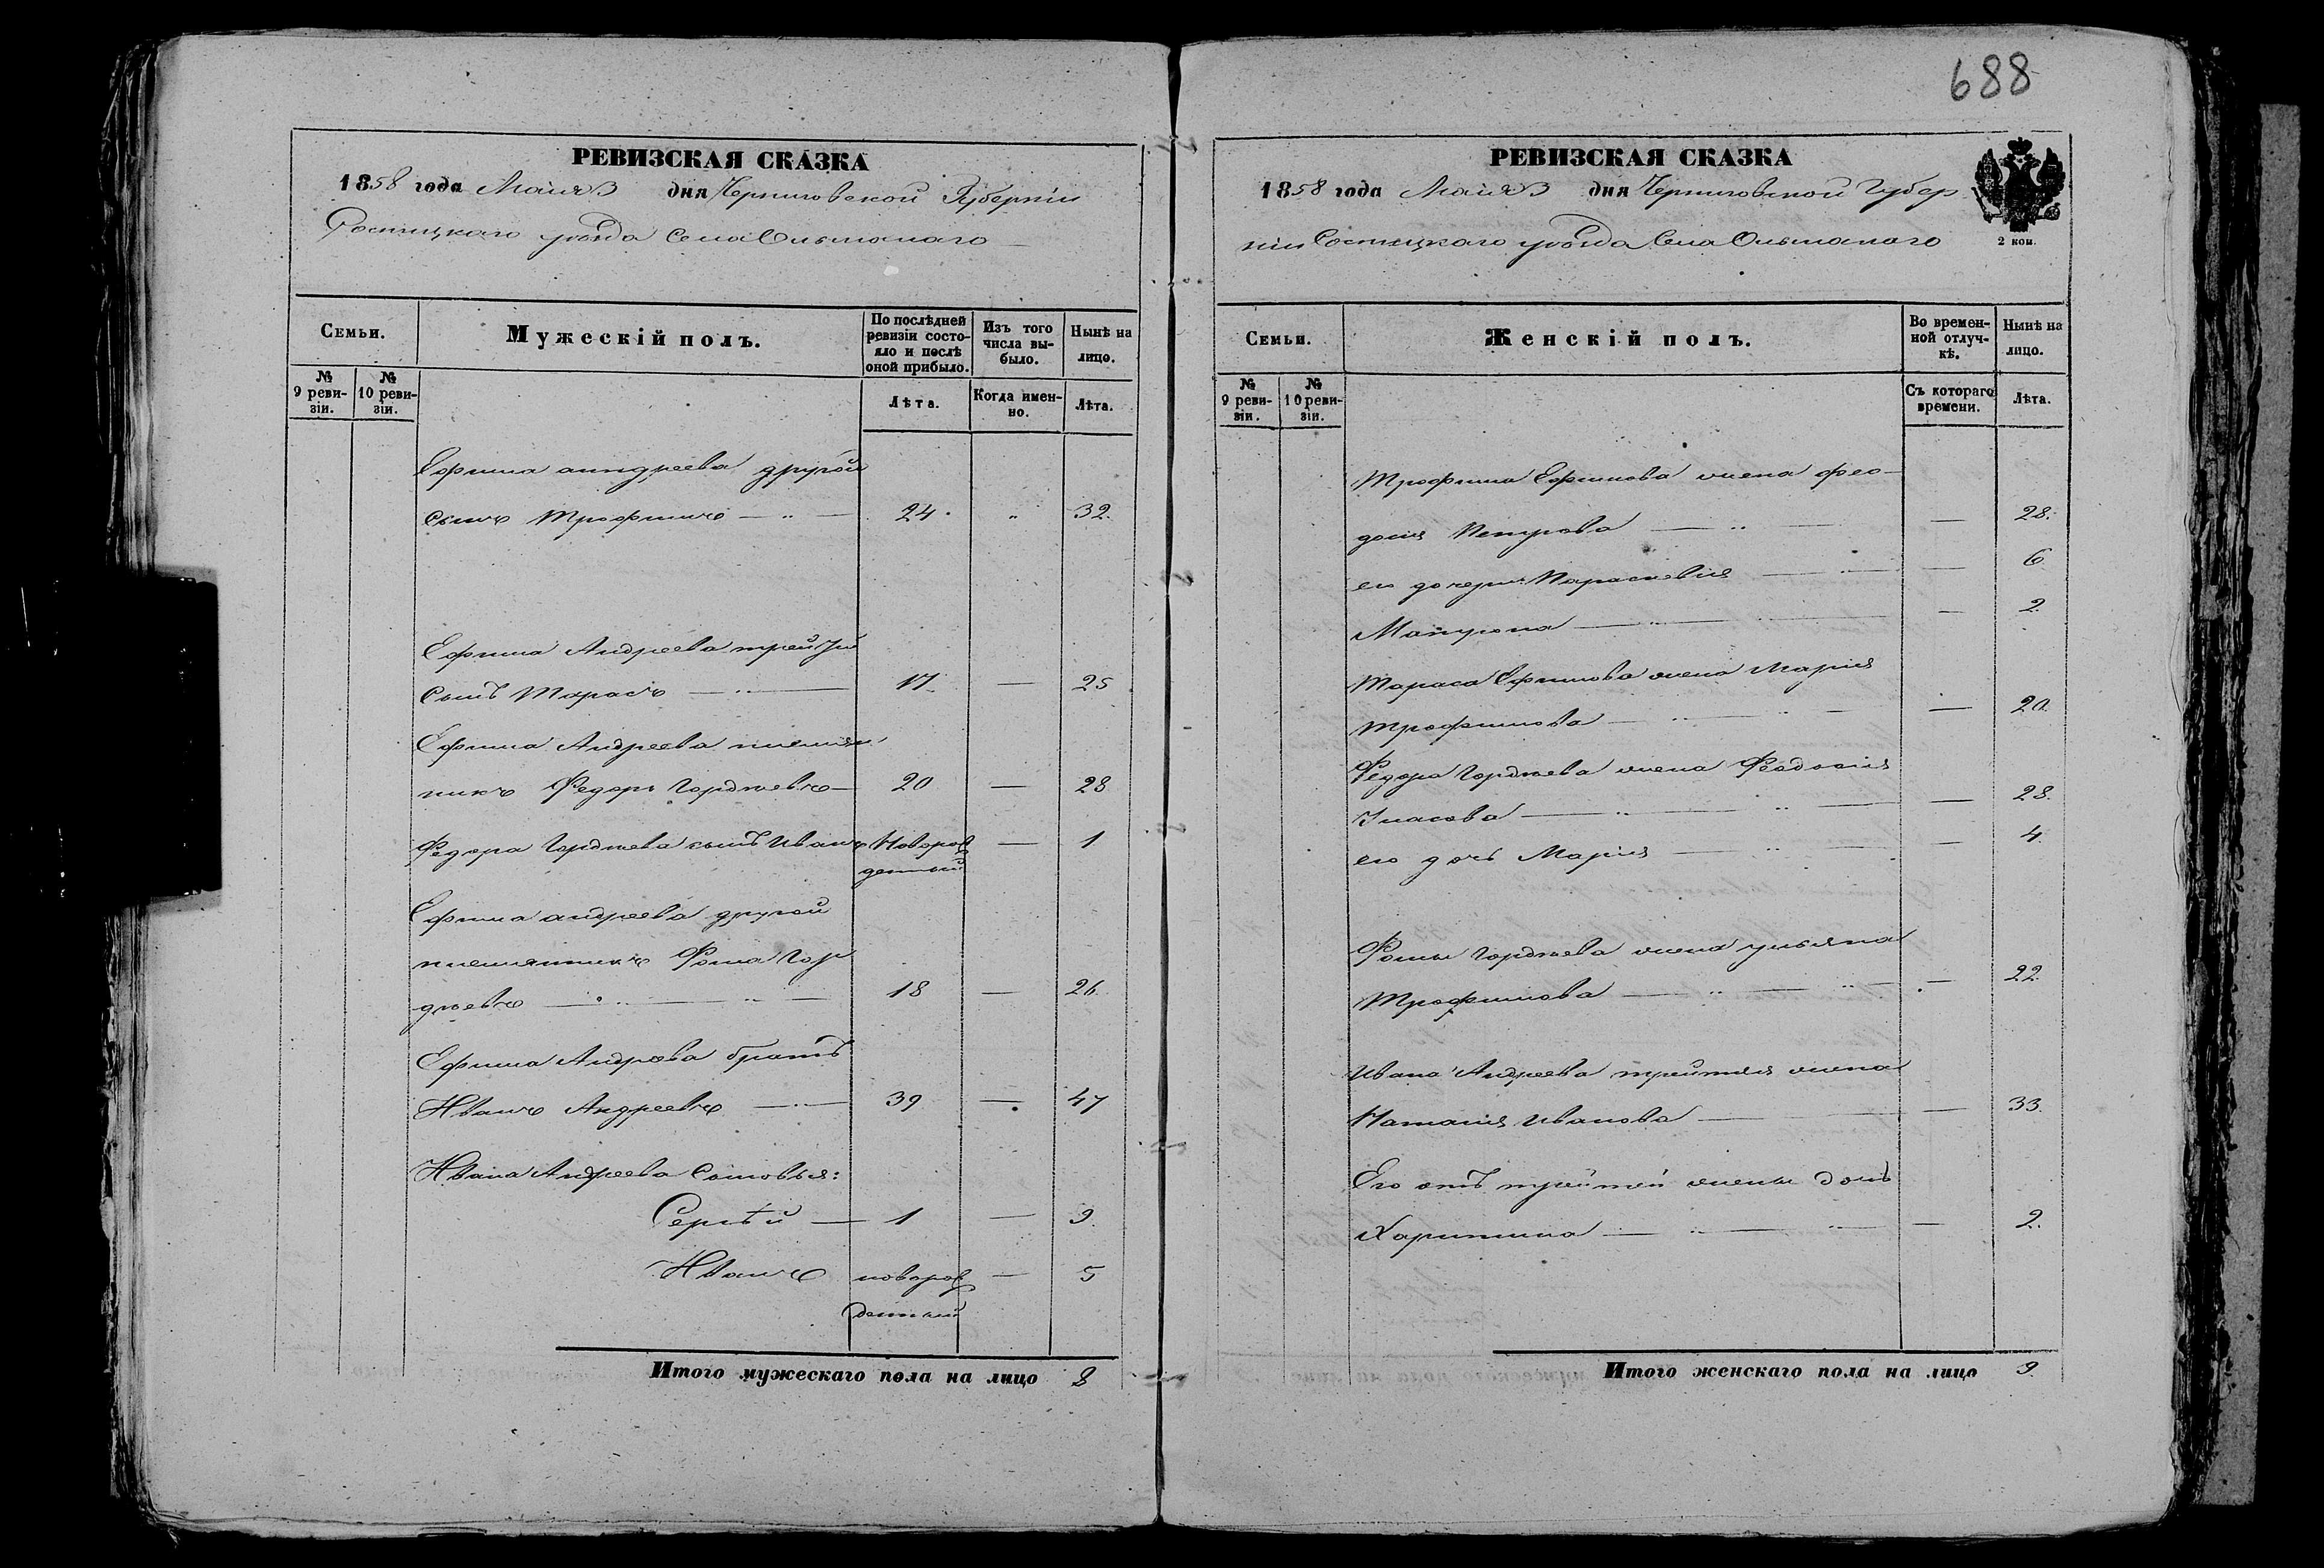 688
РЕВИЗСКАЯ СКАЗКА
1858 года Маія 3 дня Черниговской Губерніи
Сосницкаго уѣзда Села Ольшанаго
Семьи.
Мужескій полъ.
По послѣдней ревизіи состояло и послѣ оной прибыло.
Изъ того числа выбыло.
Нынѣ на лицо.
№ 9 ревизіи.
№ 10 ревизіи.
Лѣта.
Когда именно.
Лѣта.
Ефима андреева другой
сынъ Трофимъ — „ — 24. „ 32.
Ефима Андреева третій
сынъ Тарасъ — „ — 17. — 25
Ефима Андреева племян
никъ Федоръ Гордѣевъ — 20 — 28
Федора Гордѣева сынъ Иванъ Новорож — 1
денный
Ефима андреева другой
племянникъ Фома Гор
дѣевъ — „ — „ — 18 — 26.
Ефима Андреева братъ
Иванъ Андреевъ — „ — 39 — 47
Ивана Андреева Сыновья:
Сергѣй — 1 — 9.
Иванъ новорож — 5
денный
Итого мужескаго пола на лицо 8
РЕВИЗСКАЯ СКАЗКА
1858 года Маія 3 дня Черниговской Губер
ніи Сосницкаго уѣзда Села Ольшанаго
2 коп.
Семьи.
Женскій полъ.
Во временной отлучкѣ.
Нынѣ на лицо.
№ 9 ревизіи.
№ 10 ревизіи.
Съ котораго времени.
Лѣта.
Трофима Ефимова жена Фео-
досія Петрова — „ — — 28.
его дочери Параскевія — — 6
Матрона — „ — — 2.
Тараса Ефимова жена Марія
Трофимова — „ — „ — — 20.
Федора Гордѣева жена Феодосія
— „ — „ — — 28.
его дочь Марія — „ — — 4.
Фомы Гордѣева жена ульяна
Трофимова — „ — „ — — 22.
Ивана Андреева третія жена
Наталія Иванова — — 33.
Его отъ третей жены дочь
Харитина — „ — „ — — 2.
Итого женскаго пола на лицо 9.